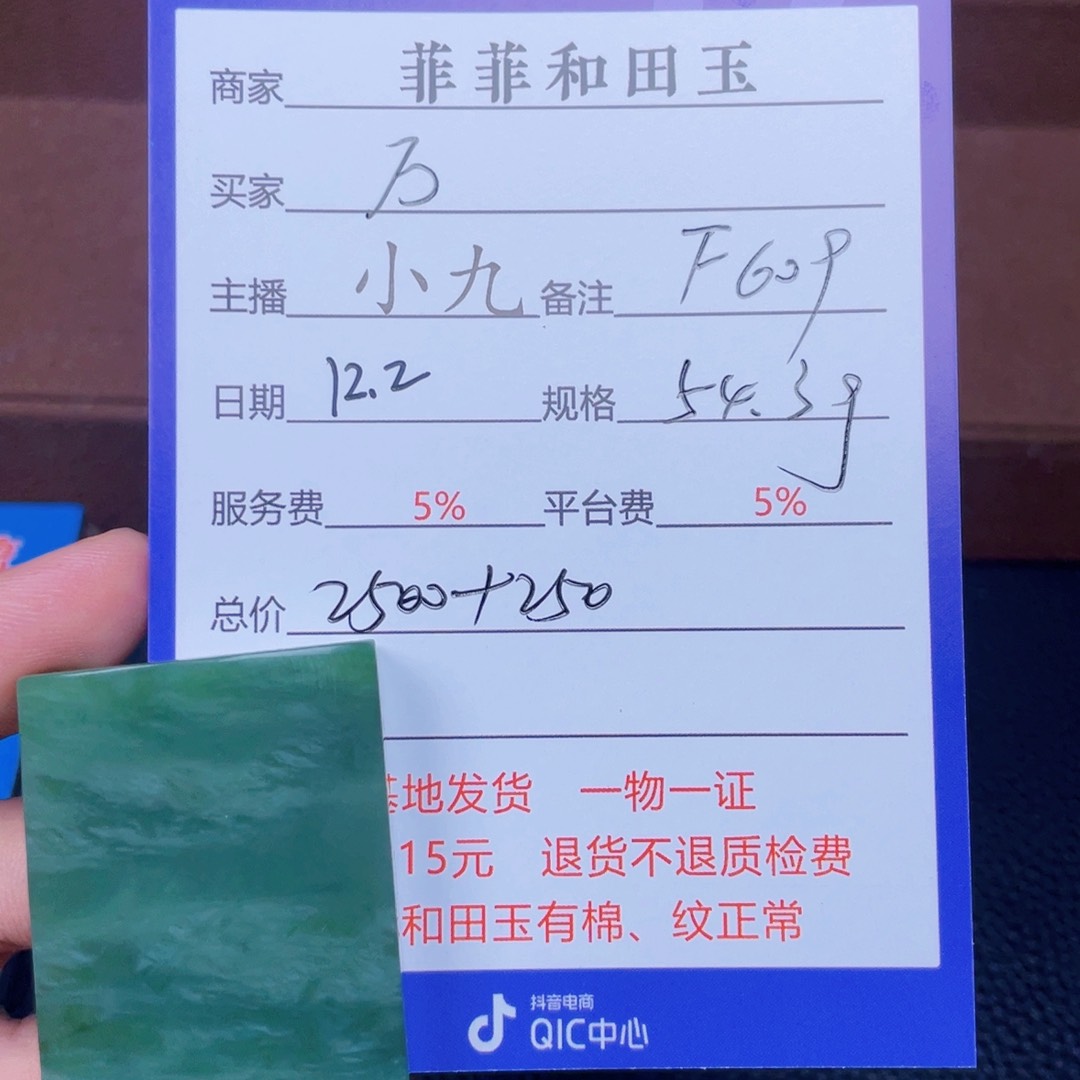 商家 菲菲和田玉
买家 万
主播 小九 备注 F609
日期 12.2 规格 54.3g
服务费 5% 平台费 5%
总价 2500+250
地发货 一物一证
15元 退货不退质检费
和田玉有棉、纹正常
抖音电商
QIC中心